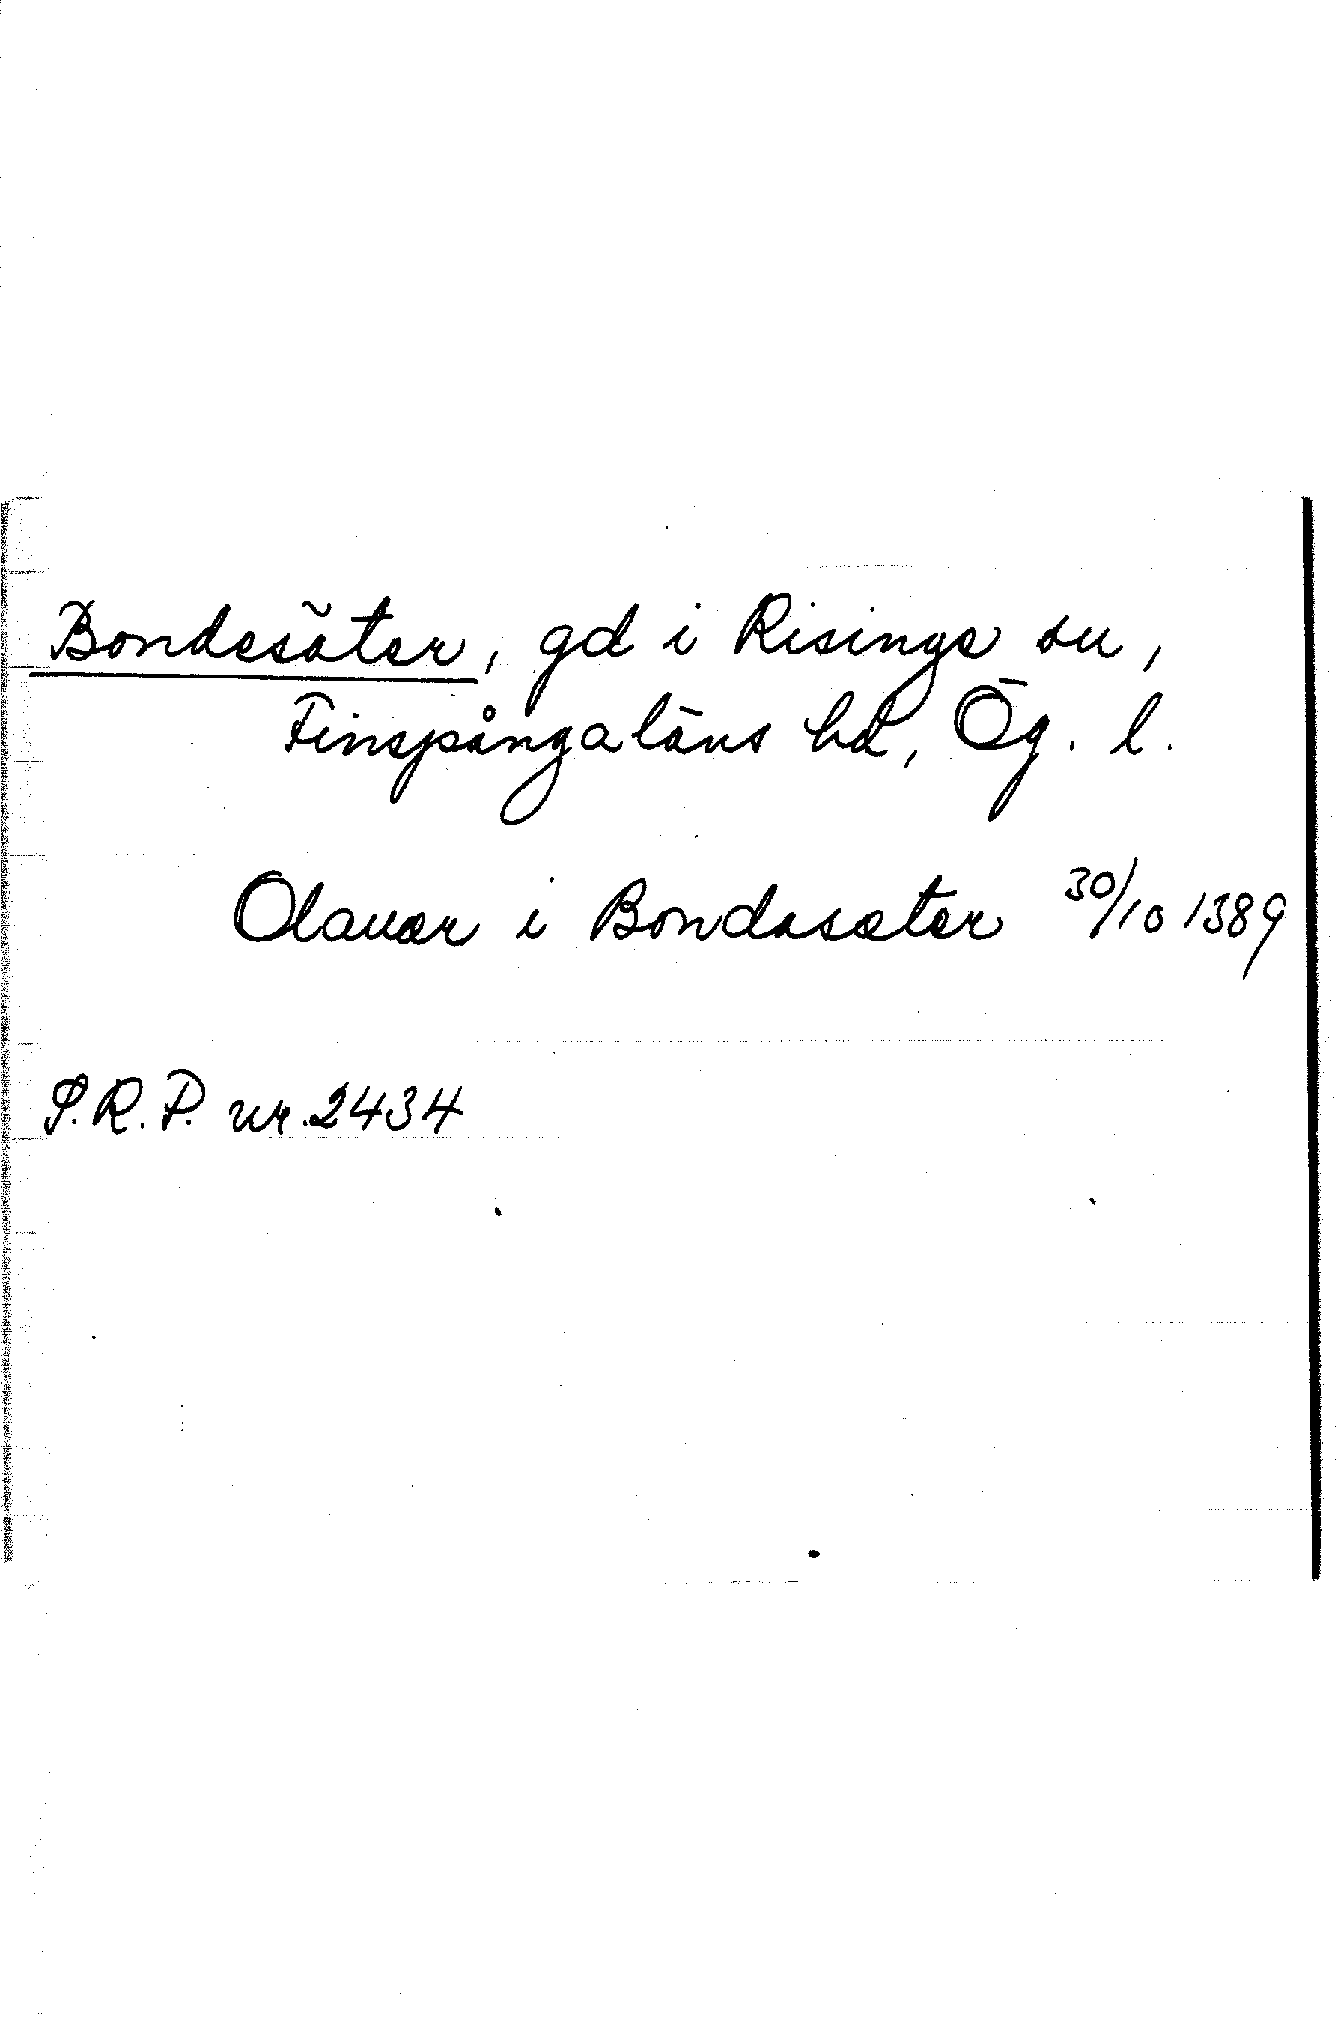 Bondesäter, gd i Risinge sn,
Finspångaläns hd, Ög. l.
Olauær i Bondasæter 30/10 1389
S.R.P. nr. 2434